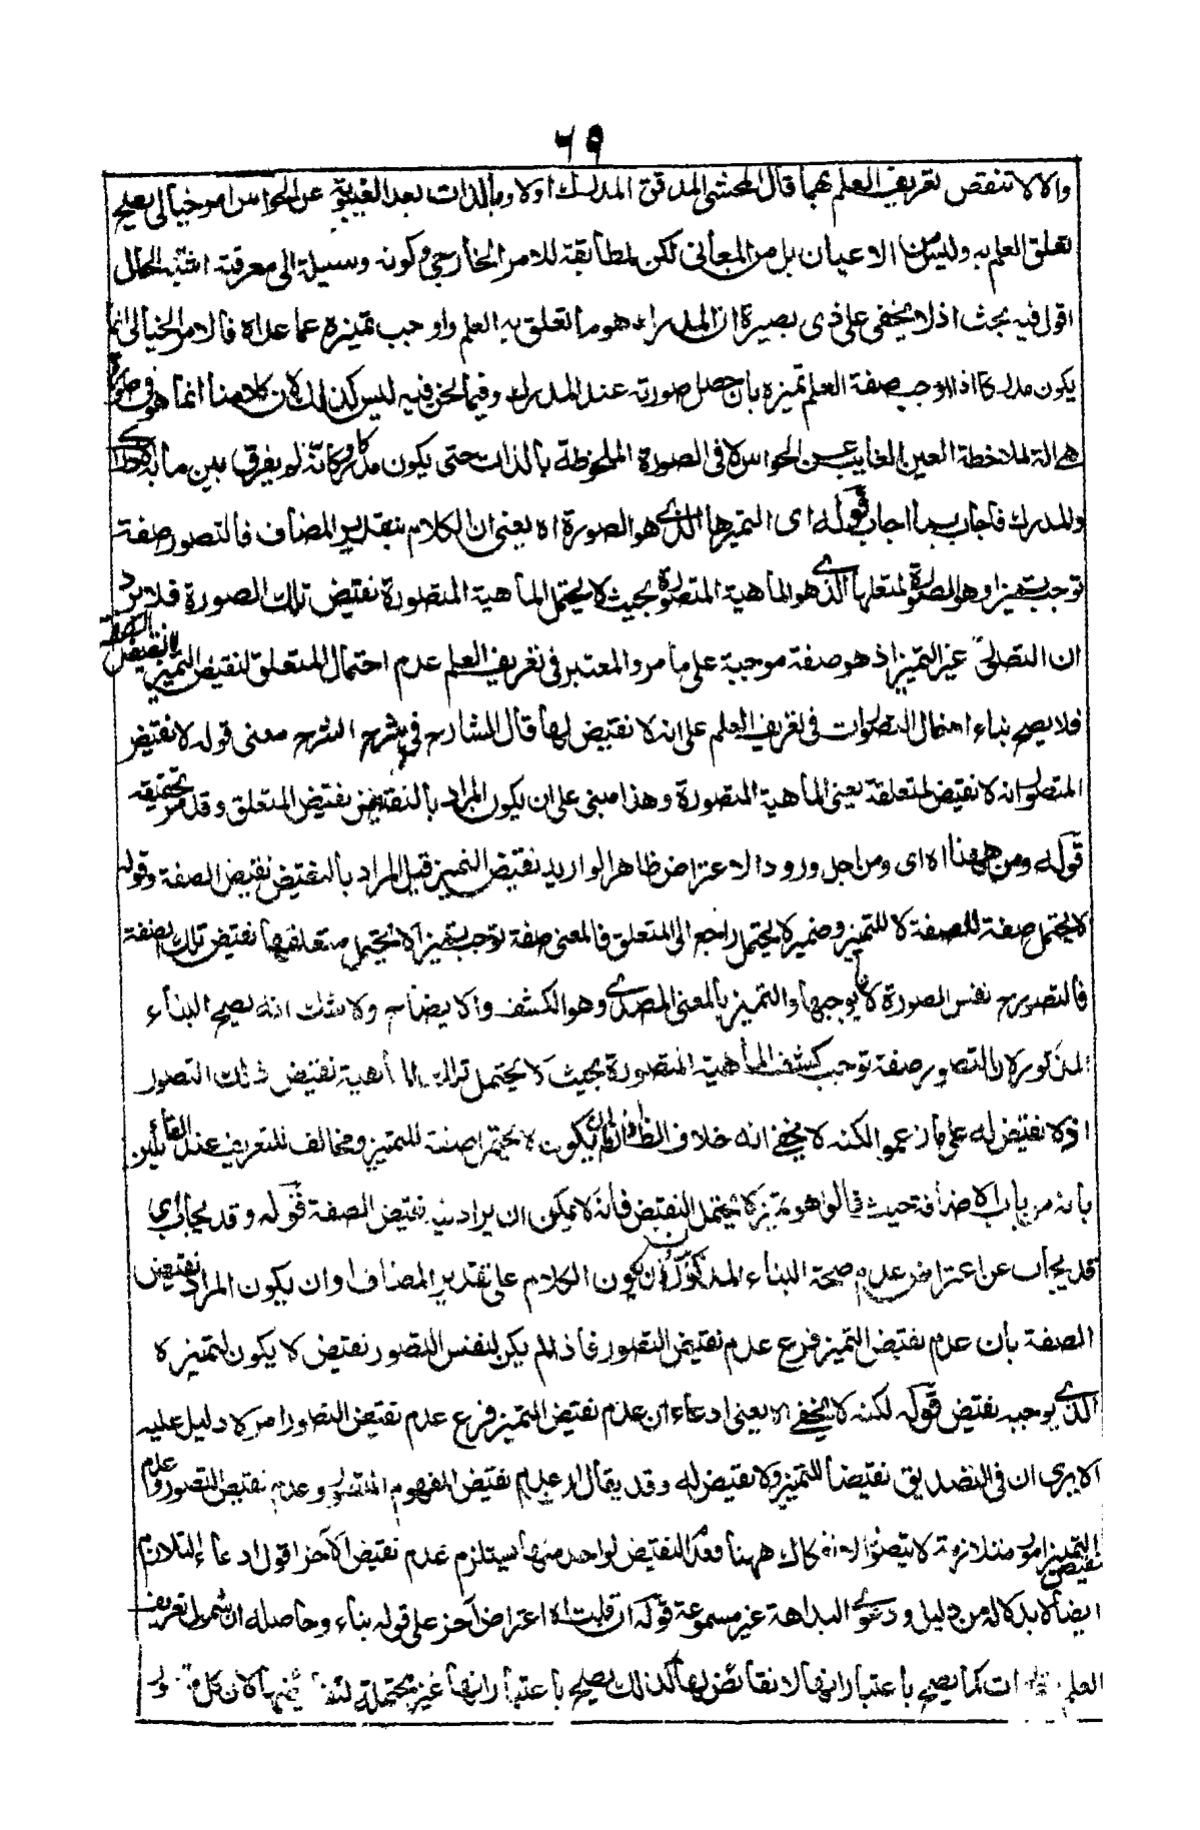 ٦٩
والا لانتقض تعريف العلم بهما قال المحشى المدقق المدرك اولا وبالذات بعد الغيبوبة عن الحواس امر خيالى يصلح
تعلق العلم به وليس من الاعيان بل من المعانى لكن لمطابقة للامر الخارجى وكونه وسيلة الى معرفته اشتبه الحال
اقول فيه بحث اذ لا يخفى على ذى بصيرة ان المدرك هو ما تعلق به العلم واوجب تميزه عما عداه فالامر الخيالى انما
يكون مدركا اذا اوجب صفة العلم تميزه بان حصل صورته عند المدرك وفيما نحن فيه ليس كذلك لان كلامنا انما هو فى صورة
هى الة لملاحظة العين الغايب عن الحواس لا فى الصورة الملحوظة بالذات حتى يكون مدركا وكانه لو يفرق بين ما به الادراك
والمدرك فاجاب بما اجاب قوله اى التميزها الذى هو الصورة اه يعنى ان الكلام بتقدير المضاف فالتصور صفة
توجب تميزا وهو الصورة لمتعلقها الذى هو الماهية المتصورة بحيث لا يحتمل الماهية المتصورة نقيض تلك الصورة فلا يرد
ان التصور غير التميز اذ هو صفة موجبة على ما مر والمعتبر فى تعريف العلم عدم احتمال المتعلق لنقيض التميز لا نقيض الصفة
فلا يصح بناء اهمال التصورات فى تعريف العلم على انه لا نقيض لها قال الشارح فى شرح الشرح معنى قوله لا نقيض
للتصور انه لا نقيض لمتعلقه يعنى الماهية المتصورة وهذا مبنى على ان يكون المراد بالنقيض نقيض المتعلق وقد مر تحقيقه
قوله ومن ههنا اه اى ومن اجل ورود الاعتراض ظاهرا لو اريد نقيض التميز قيل المراد بالنقيض نقيض الصفة وقوله
لا يحتمل صفة للصفة لا للتميز وضمير لا يحتمل راجع الى المتعلق فالمعنى صفة توجب تميزا لا يحتمل متعلقها نقيض تلك الصفة
فالتصور ح نفس الصورة لا ما يوجبها والتميز بالمعنى المصدرى وهو الكشف والايضاح ولا شك انه يصح البناء
المذكور لان التصور صفة توجب كشف الماهية المتصورة بحيث لا يحتمل تلك الماهية نقيض ذلك التصور
اذ لا نقيض له على ما زعموا لكنه لا يخفى انه خلاف الظاهر يكون لا يحتمل صفة للتميز ومخالف للتعريف عند القائلين
بانه من باب الاضافة حيث قالوا هو تميز لا يحتمل النقيض فانه لا يمكن ان يراد نقيض الصفة قوله وقد يجاب اى
قد يجاب عن اعتراض عدم صحة البناء المذكور يكون الكلام على تقدير المضاف او ان يكون المراد نقيض
الصفة بان عدم نقيض التميز فرع عدم نقيض التصور فاذا لم يكن لنفس التصور نقيض لا يكون لتميزه
الذى يوجبه نقيض قوله لكنه لا يخفى الا يعنى ادعاء ان عدم نقيض التميز فرع عدم نقيض التصور امر لا دليل عليه
الا يرى ان فى التصديق نقيضا للتميز ولا نقيض له وقد يقال ان عدم نقيض المفهوم المتصور وعدم نقيض التصور وعدم
نقيض التميز امور متلازمة لا يتصور الانفكاك ههنا فعدم النقيض لواحد منها يستلزم عدم نقيض الاخر اقول ادعاء التلازم
ايضا لا بد له من دليل ودعوى البداهة غير مسموعة قوله ان قلت اه اعتراض اخر على قوله بناء وحاصله ان شمول تعريف
العلم ات كما يصح باعتبار انها لا نقائض لها كذلك يصلح باعتبار انها غير محتملة لان كل